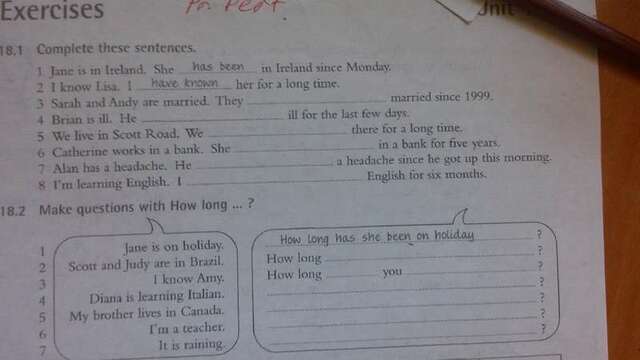 Exercises
Unit
18.1 Complete these sentences.
1 Jane is in Ireland. She has been in Ireland since Monday.
2 I know Lisa. I have known her for a long time.
3 Sarah and Andy are married. They married since 1999.
4 Brian is ill. He ill for the last few days.
5 We live in Scott Road. We there for a long time.
6 Catherine works in a bank. She in a bank for five years.
7 Alan has a headache. He a headache since he got up this morning.
8 I'm learning English. I English for six months.
18.2 Make questions with How long ... ?
1 Jane is on holiday. How long has she been on holiday ?
2 Scott and Judy are in Brazil. How long ?
3 I know Amy. How long you ?
4 Diana is learning Italian. ?
5 My brother lives in Canada. ?
6 I'm a teacher. ?
7 It is raining. ?